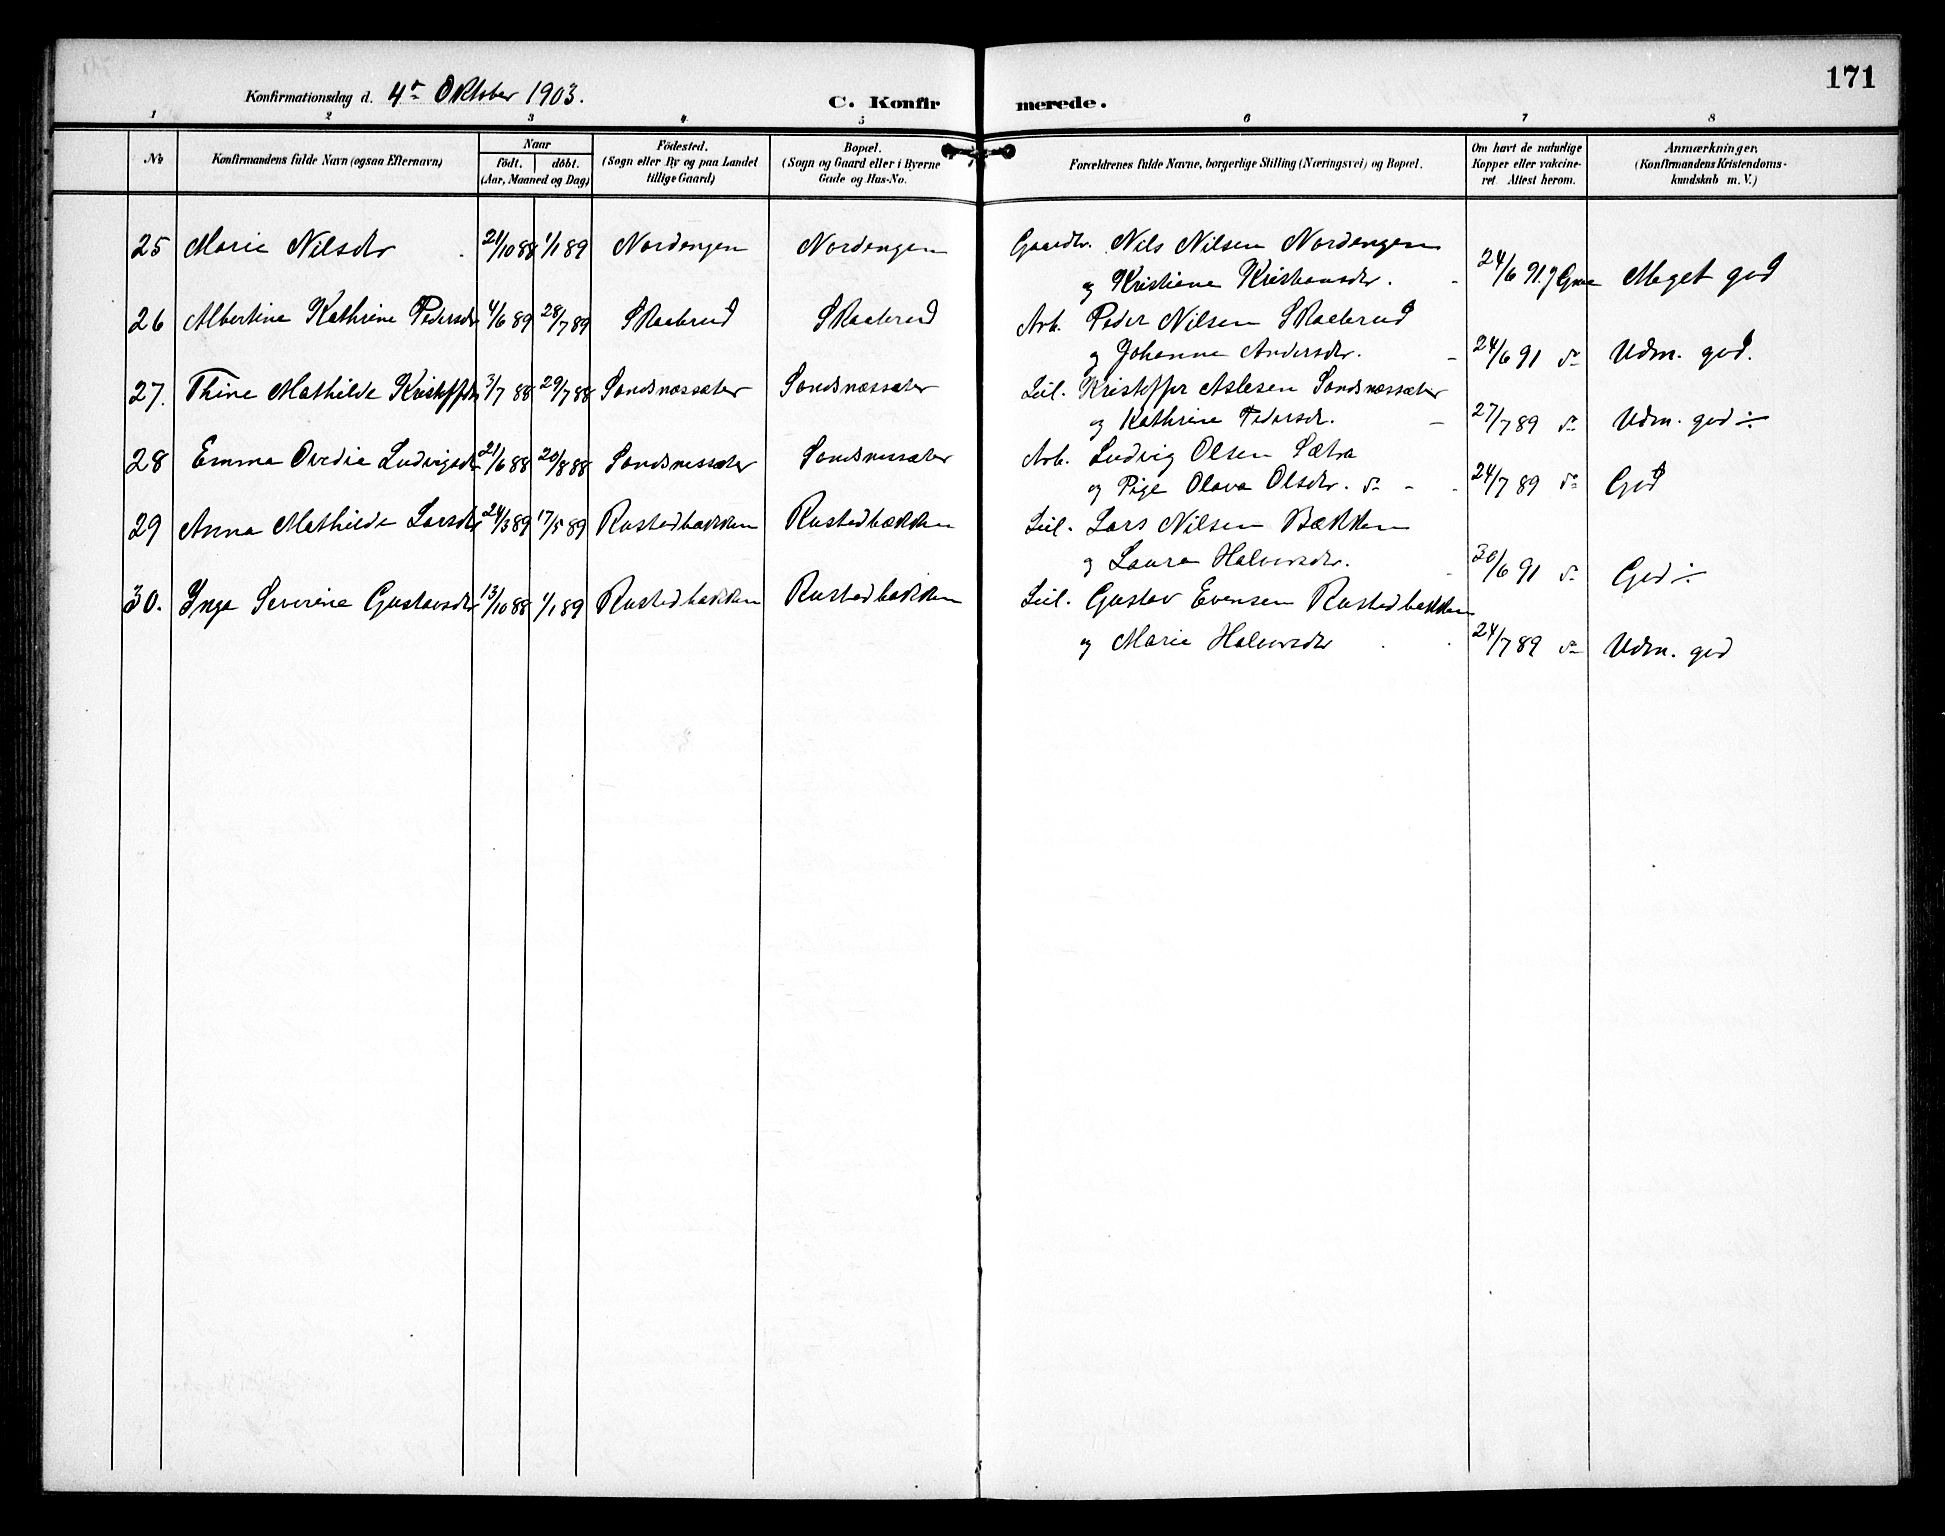 171
Konfirmationsdag d. 4de Oktober 1903.
C. Konfirmerede.
1 2 3 4. 5 6 7 8
No Konfirmandens fulde Navn (ogsaa Efternavn) Naar födt. döbt. (Aar, Maaned og Dag) Födested. (Sogn eller By og paa Landet tillige Gaard) Bopæl. (Sogn og Gaard eller i Byerne Gade og Hus-No. Forældrenes fulde Navne, borgerlige Stilling (Næringsvei) og Bopæl. Om havt de naturlige Kopper eller vakcineret. Attest herom. Anmærkninger. (Konfirmandens Kristendomskundskab m. V.)
25 Marie Nilsdtr 21/10 88 1/1 89 Nordengen Nordengen Gaardbr. Nils Nilsen Nordengen
og Kristiane Kristiansdtr. 24/6 91. J Grue Meget god
26 Albertine Kathrine Pedersdtr 4/6 89 28/7 89 Skaebrud Skaebrud Arb. Peder Nilsen Skaebrud
og Johanne Andersdtr. 24/6 91 do Udm. god.
27. Thine Mathilde Kristoffdtr 3/7 88 29/7 88 Sandsnæssæter Sandsnæssæter Leil. Kristoffer Aslesen Sandsnæssæter
og Kathrine Pedersdr. 27/7 89 do Udm. god ÷
28 Emma Ovedie Ludvigsdtr 21/6 88 20/8 88 Sandsnessæter Sandsnessæter Arb. Ludvig Olsen Sætra
og Pige Olava Olsdtr. do 24/7 89 do God
29 Anna Mathilde Larsdtr 24/3 89 17/5 89 Rustadbækken Rustadbækken Leil. Lars Nilsen Bækken
og Laura Halvorsdtr. 30/6 91 do God ÷
30. Inga Severine Gustavsdtr 13/10 88 1/1 89 Rustadbækken Rustadbækken Leil. Gustav Evensen Rustadbækken
og Marie Halvorsdtr 24/7 89 do Udm. god